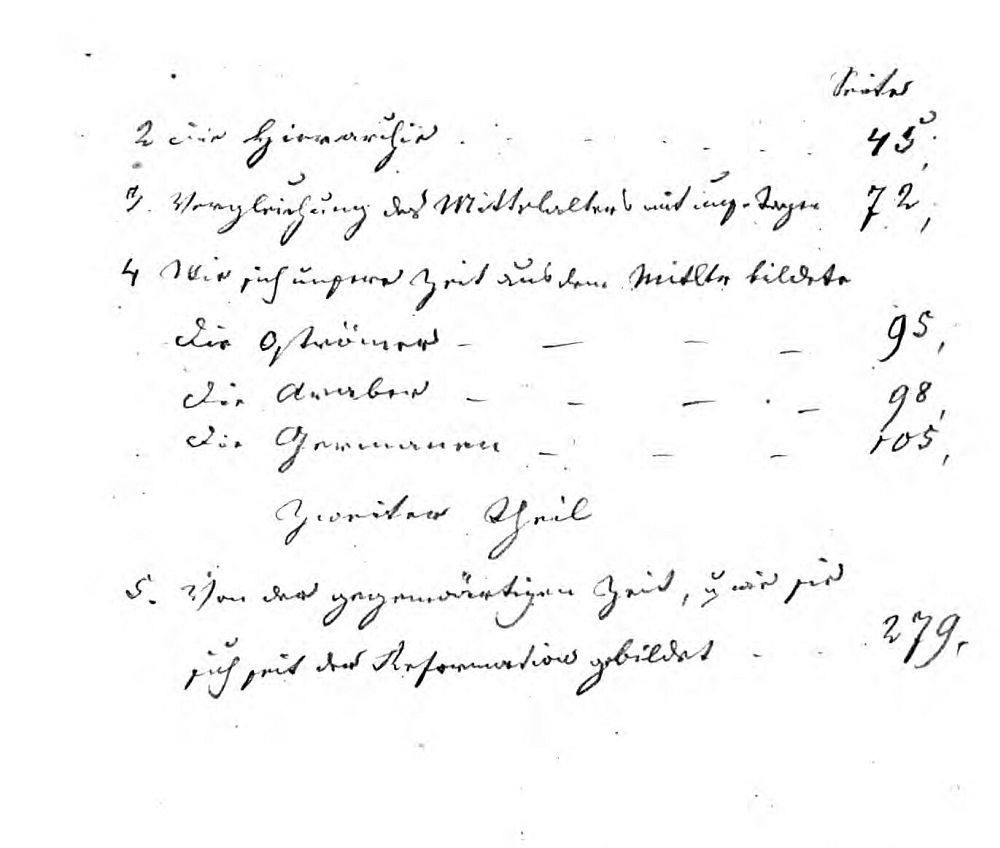 Seite
2 Die Hierarchie . . . . . . 45,
3. Vergleichung des Mittelalters mit uns. Tagen 72,
4 Wie sich unsere Zeit aus dem Mitltr bildete
Die Oströmer – – – – 95,
Die Araber – – – – 98,
Die Germanen – – – 105,
Zweiter Theil
5. Von der gegenwärtigen Zeit, u wie sie
sich seit der Reformation gebildet . . 279.